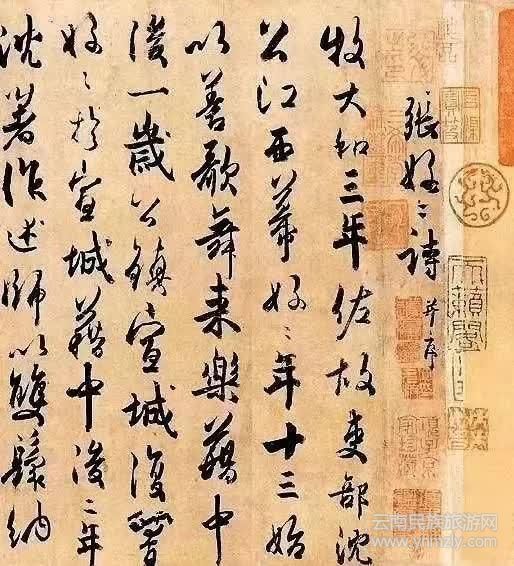 張好〻詩 并序
牧大和三年佐故吏部沈
公江西幕好〻年十三始
以善歌舞来樂籍中
後一歲公鎮宣城復置
好〻於宣城籍中後二年
沈著作述師以雙鬟納
天籟閣
云南民族旅游网
www.yhmzly.com